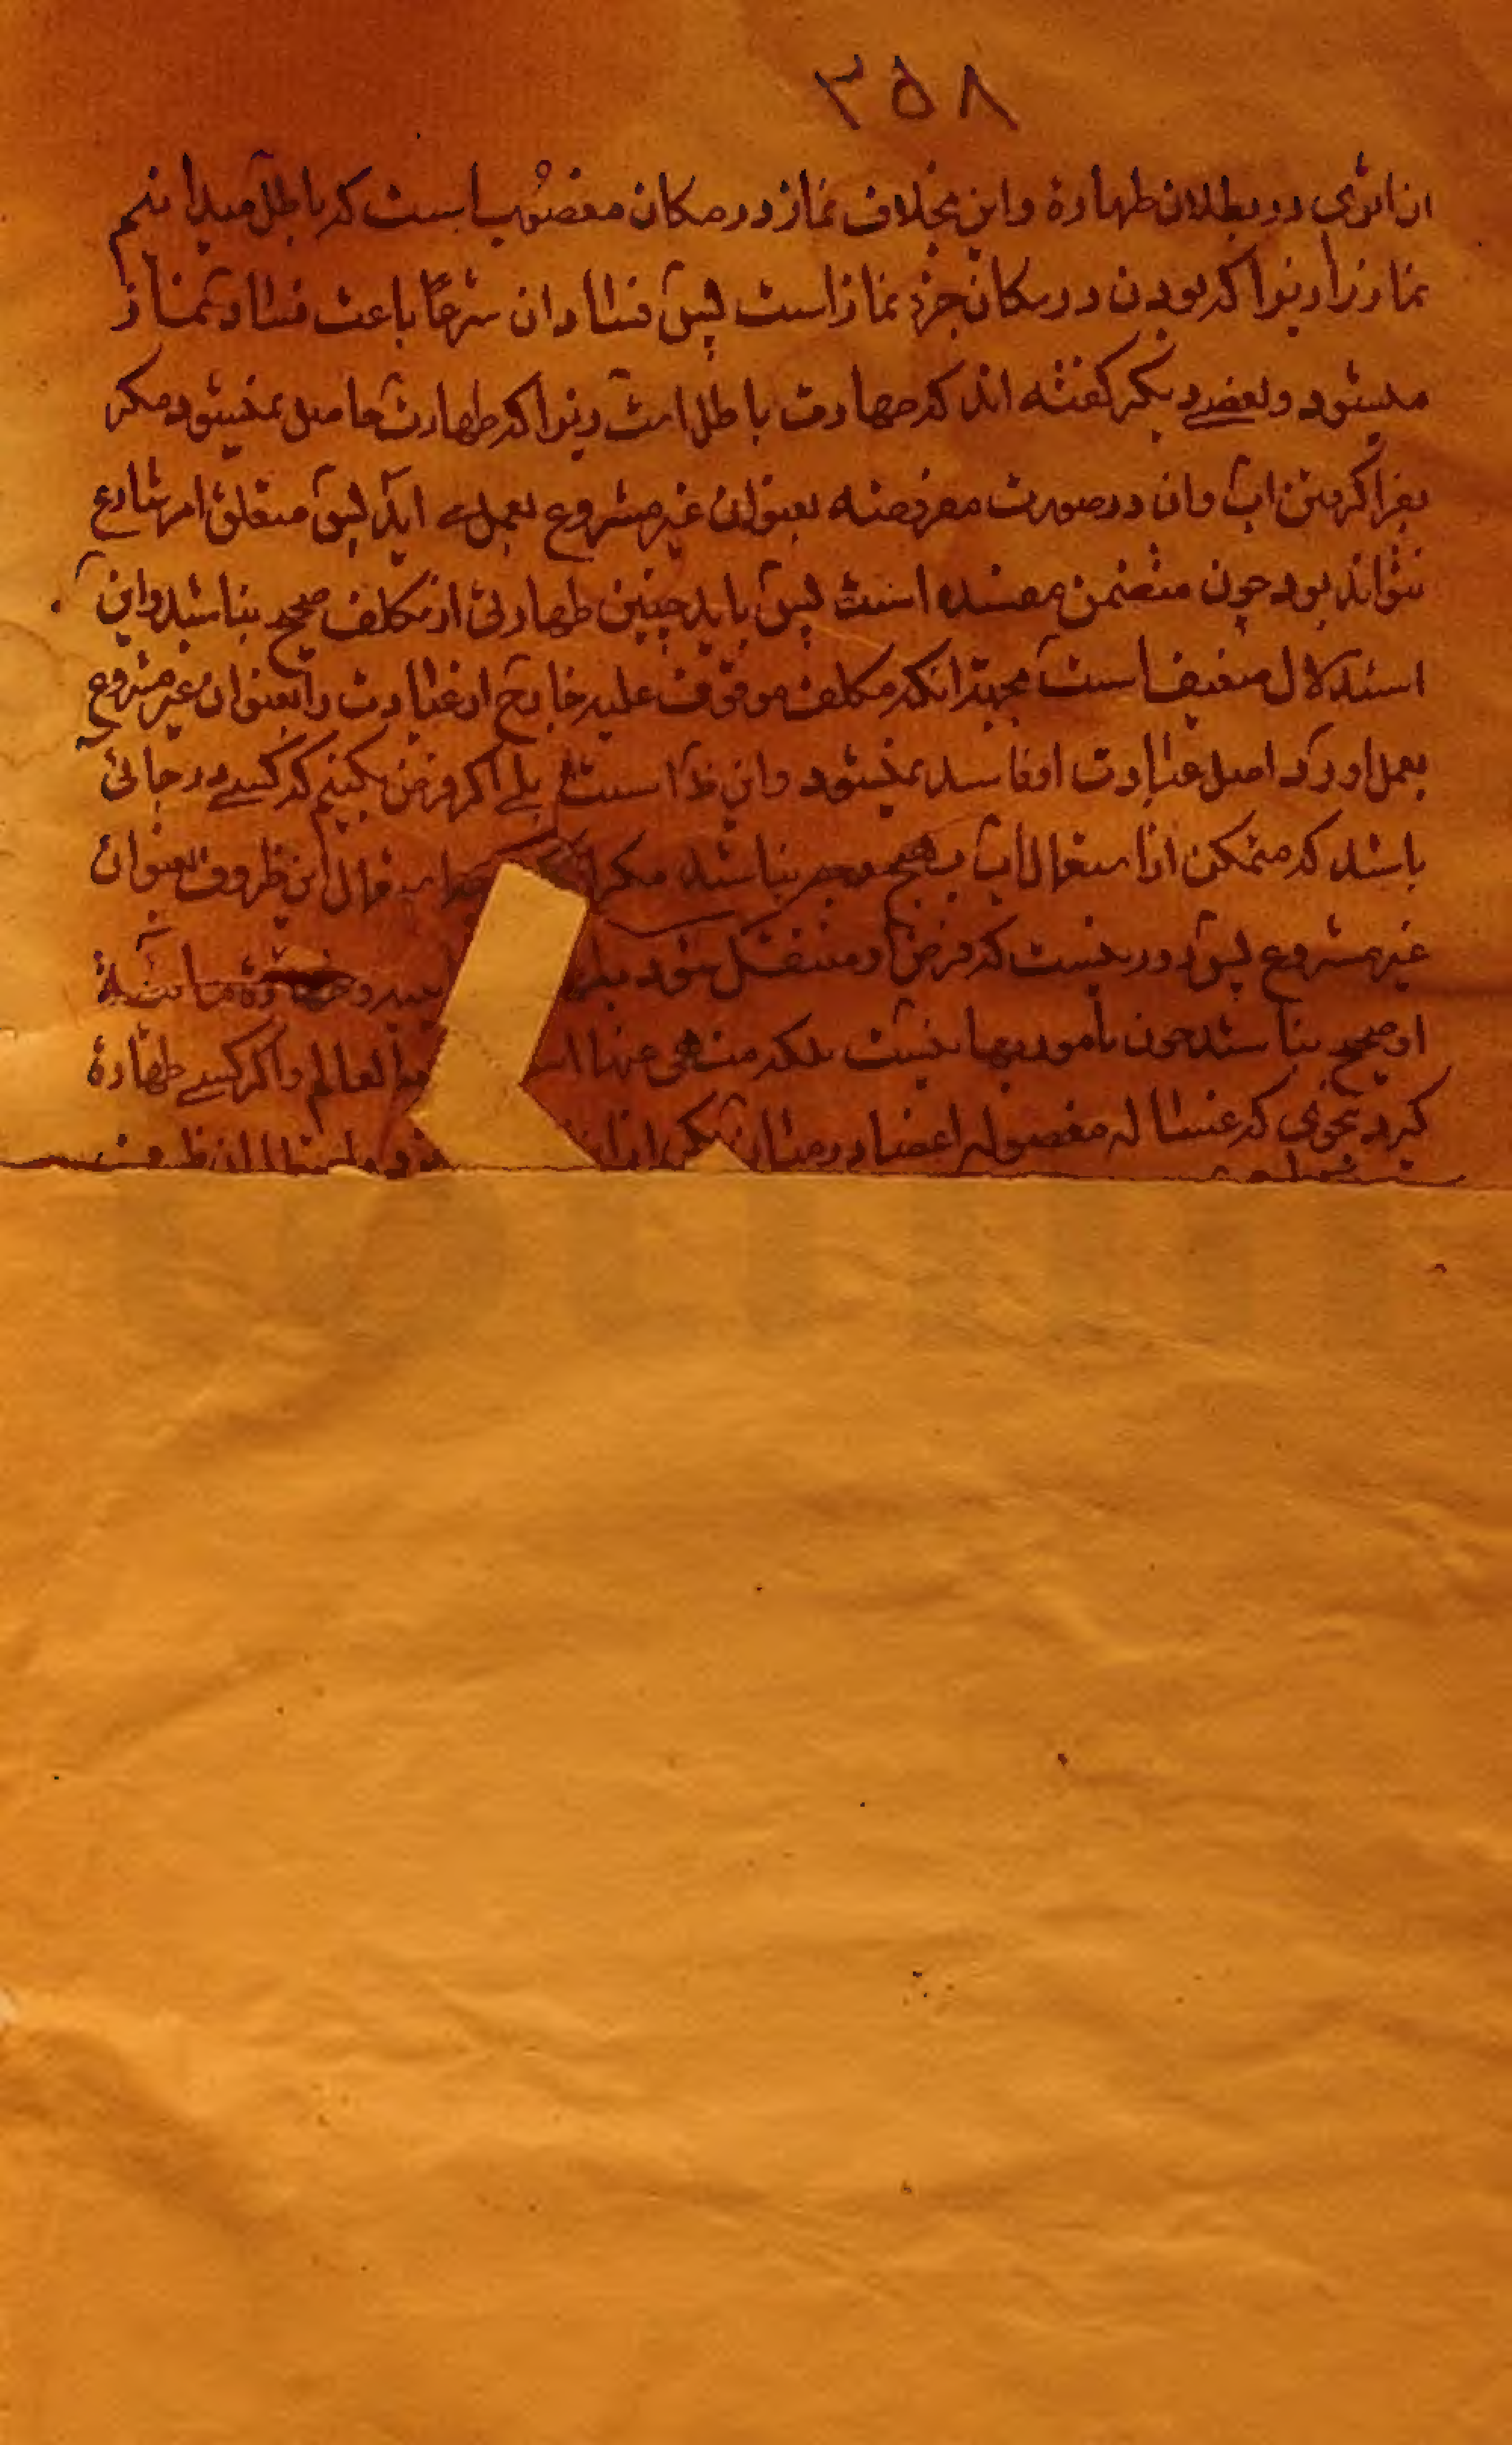 ۳۵۸
ان اثری در بطلان طهارة و این بخلاف نماز در مکان مغصوب است که باطل میدانیم
نماز را زیرا که بودن در مکان جزء نماز است پس فساد ان شرعا باعث فساد نماز
میشود و بعضی دیگر گفته اند که طهارت باطل است زیرا که طهارت حاصل نمیشود مگر
بفرا گرفتن اب و ان در صورت مفروضه بعنوان غیر مشروع بعمل می اید پس متعلق امر شارع
نتواند بود چون متضمن مفسده است پس باید چنین طهارتی از مکلف صحیح نباشد و این
استدلال ضعیف است بجهة انکه مکلف موقوف علیه خارج از عبادت را بعنوان غیر مشروع
بعمل اورد اصل عبادت او فاسد نمیشود و این ظاست بلی اگر فرض بکنیم که کسی در جائی
باشد که متمکن از استعمال اب بهیچ وجه نباشد مگر استعمال این ظروف بعنوان
غیر مشروع پس دور نیست که فرض او منتقل شود طهارة مائیة
او صحیح نباشد چون مامور بها نیست بلکه منهی عنها العالم و اگر کسی طهارة
کرد بنحوی که غساله مغسوله اعضا در میان